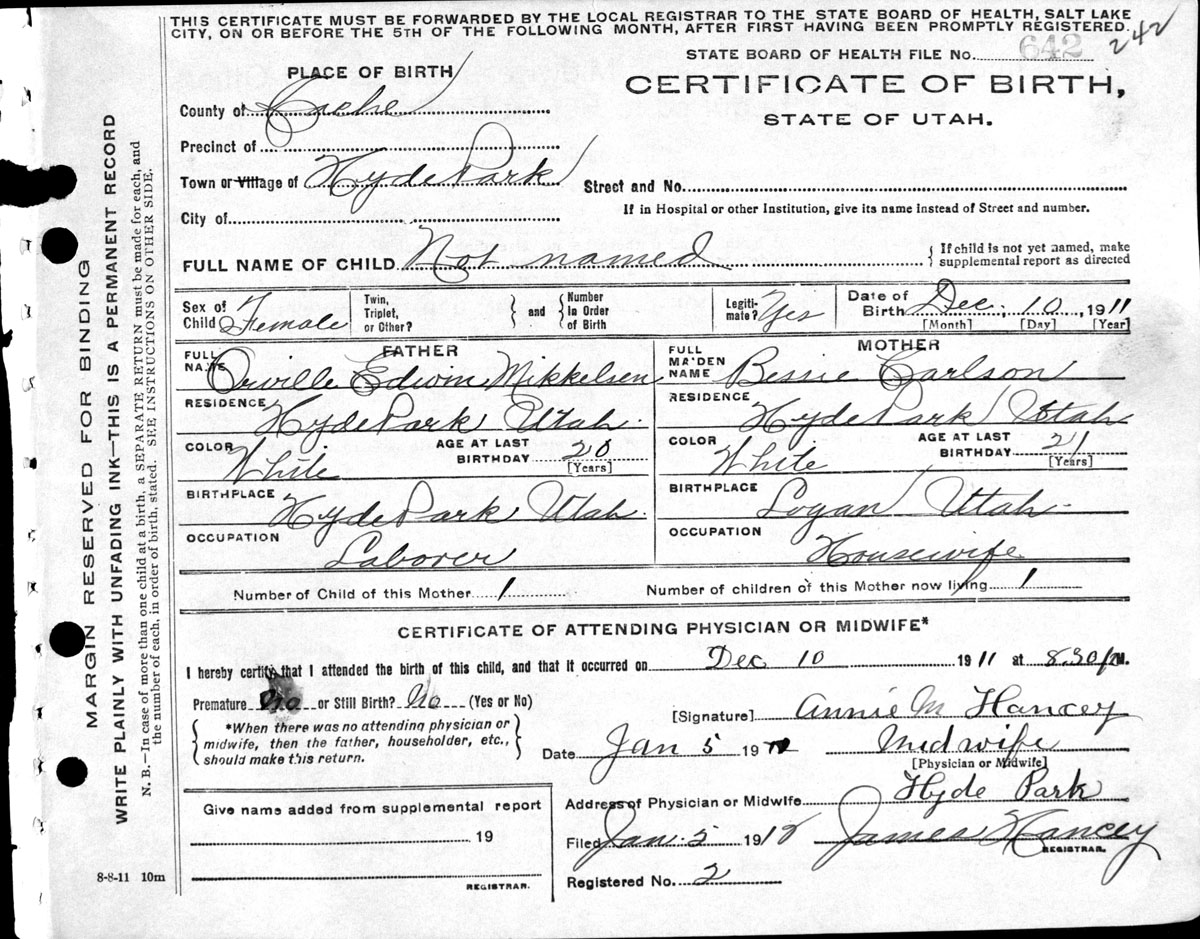 THIS CERTIFICATE MUST BE FORWARDED BY THE LOCAL REGISTRAR TO THE STATE BOARD OF HEALTH, SALT LAKE
CITY, ON OR BEFORE THE 5TH OF THE FOLLOWING MONTH, AFTER FIRST HAVING BEEN PROMPTLY REGISTERED.
242
STATE BOARD OF HEALTH FILE No. 642
PLACE OF BIRTH
CERTIFICATE OF BIRTH,
STATE OF UTAH.
County of Cache
Precinct of
Town or Village of Hyde Park
Street and No.
City of
If in Hospital or other Institution, give its name instead of Street and number.
FULL NAME OF CHILD Not named
{ If child is not yet named, make
supplemental report as directed
Sex of Child Female
Twin, Triplet, or Other?
} and {
Number In Order of Birth
Legiti-mate? Yes
Date of Birth Dec. 10, 1911
[Month] [Day] [Year]
FATHER
FULL NAME Orville Edwin Mikkelsen
RESIDENCE Hyde Park Utah.
COLOR White
AGE AT LAST BIRTHDAY 20
[Years]
BIRTHPLACE Hyde Park Utah.
OCCUPATION Laborer
MOTHER
FULL MAIDEN NAME Bessie Carlson
RESIDENCE Hyde Park Utah
COLOR White
AGE AT LAST BIRTHDAY 21
[Years]
BIRTHPLACE Logan Utah.
OCCUPATION Housewife
Number of Child of this Mother 1
Number of children of this Mother now living 1
CERTIFICATE OF ATTENDING PHYSICIAN OR MIDWIFE*
I hereby certify that I attended the birth of this child, and that it occurred on Dec 10 1911 at 8.30 P.M.
Premature No or Still Birth? No (Yes or No)
{ *When there was no attending physician or
midwife, then the father, householder, etc.,
should make this return. }
[Signature] Annie M Hancey
Date Jan 5 1912
Midwife
[Physician or Midwife]
Address of Physician or Midwife Hyde Park
Filed Jan. 5 1912 James Hancey
REGISTRAR.
Registered No. 2
Give name added from supplemental report
19
REGISTRAR.
8-8-11 10m
MARGIN RESERVED FOR BINDING
WRITE PLAINLY WITH UNFADING INK—THIS IS A PERMANENT RECORD
N. B.—In case of more than one child at a birth, a SEPARATE RETURN must be made for each, and
the number of each, in order of birth, stated. SEE INSTRUCTIONS ON OTHER SIDE.